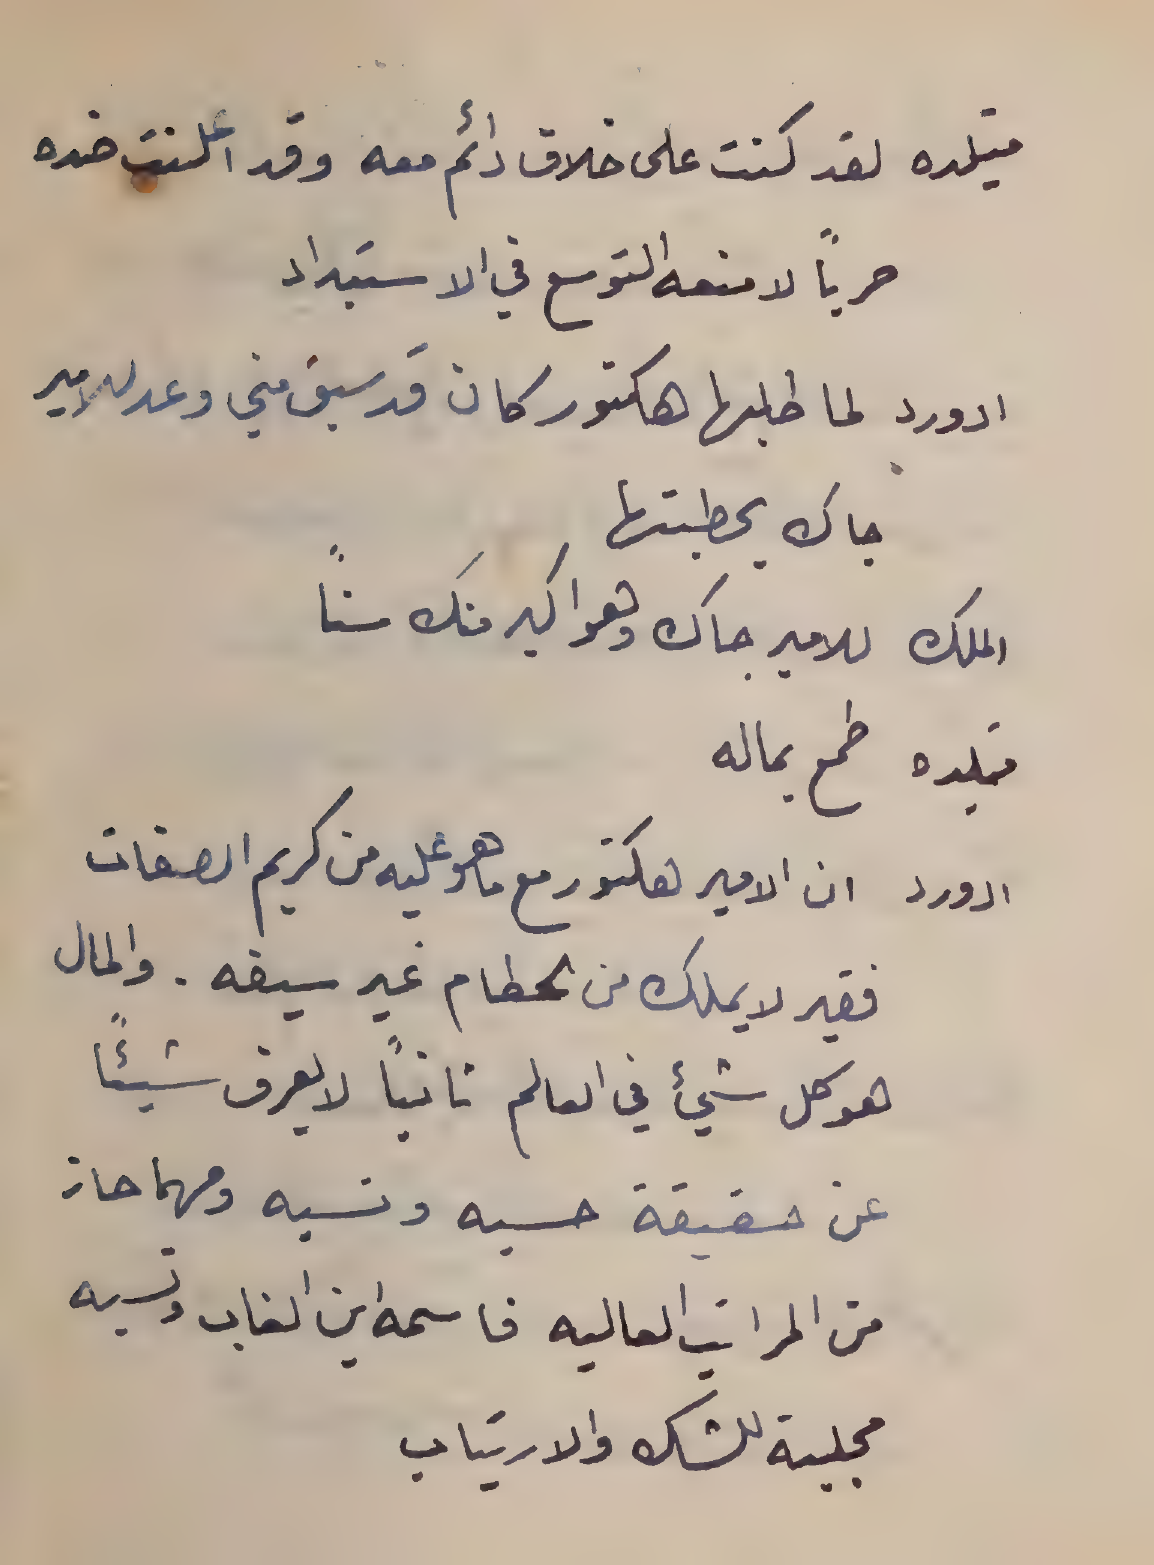 متيلده لقد كنت على خلاف دائم معه وقد اعلنت ضده
حرباً لامنعه التوسع في الاستبداد
ادورد لما طلبها هكتور كان قد سبق مني وعد للامير
جاك بخطبتها
الملك للامير جاك وهو اكبر منك سناً
متيلده طمع بماله
ادورد ان الامير هكتور مع ما هو عليه من كريم الصفات
فقير لا يملك من الحطام غير سيفه . والمال
هو كل شيئ في العالم ثانياً لا يعرف شيئاً
عن حقيقة حسبه ونسبه ومهما حاز
من المراتب العاليه فاسمه ابن الغاب ونسبه
مجلبة للشك والارتياب